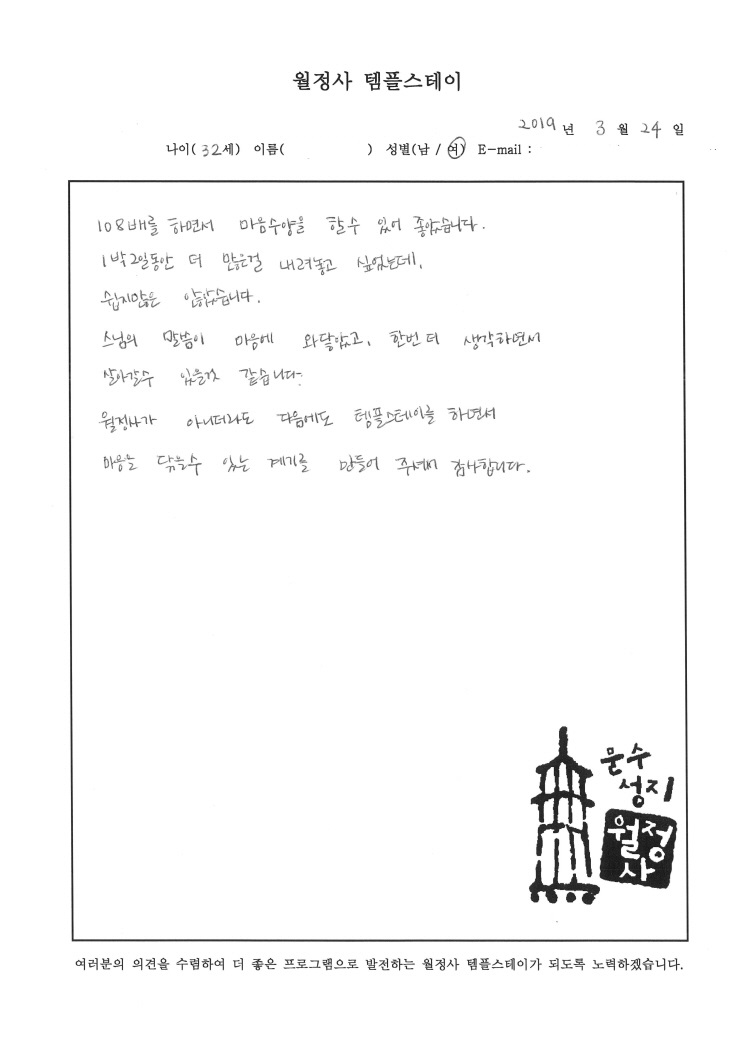 월정사 템플스테이
2019 년 3 월 24 일
나이( 32세) 이름( ) 성별(남 / 여) E-mail :
108배를 하면서 마음수양을 할수 있어 좋았습니다.
1박2일동안 더 많은걸 내려놓고 싶었는데,
쉽지많은 않았습니다.
스님의 말씀이 마음에 와닿았고, 한번 더 생각하면서
살아갈수 있을것 같습니다.
월정사가 아니더라도 다음에도 템플스테이를 하면서
마음을 닦을수 있는 계기를 만들어 주셔서 감사합니다.
문수
성지
월정
사
여러분의 의견을 수렴하여 더 좋은 프로그램으로 발전하는 월정사 템플스테이가 되도록 노력하겠습니다.